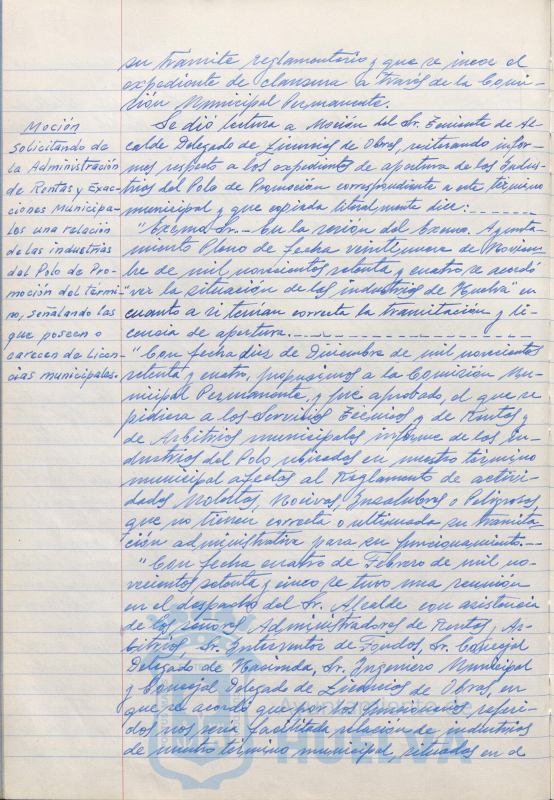 su trámite reglamentario, y que se incoe el
expediente de clausura a través de la Comi-
sión Municipal Permanente.
Moción
solicitando de
la Administración
de Rentas y Exac-
ciones Municipa-
les una relación
de las industrias
del Polo de Pro-
moción del térmi-
no, señalando las
que poseen o
carecen de licen-
cias municipales.
Se dió lectura a Moción del Sr. Teniente de Al-
calde Delegado de Licencias de Obras, reiterando infor-
mes respecto a los expedientes de apertura de las Indus-
trias del Polo de Promoción correspondiente a este término
municipal, y que copiada literalmente dice:
"Excmo. Sr.- En la sesión del Excmo. Ayunta-
miento Pleno de fecha veintinueve de Noviem-
bre de mil novecientos setenta y cuatro se acordó
"ver la situación de las industrias de Huelva" en
cuanto a si tenían correcta la tramitación y li-
cencia de apertura.
"Con fecha diez de Diciembre de mil novecientos
setenta y cuatro, propusimos a la Comisión Mu-
nicipal Permanente, y fué aprobado, el que se
pidiera a los Servicios Técnicos y de Rentas y
de Arbitrios municipales informe de las In-
dustrias del Polo ubicadas en nuestro término
municipal afectas al Reglamento de activi-
dades Molestas, Nocivas, Insalubres o Peligrosas
que no tienen correcta o ultimada su tramita-
ción administrativa para su funcionamiento.
"Con fecha cuatro de Febrero de mil no-
vecientos setenta y cinco se tuvo una reunión
en el despacho del Sr. Alcalde con asistencia
de los señores Administradores de Rentas y Ar-
bitrios, Sr. Interventor de Fondos, Sr. Concejal
Delegado de Hacienda, Sr. Ingeniero Municipal
y Concejal Delegado de Licencias de Obras, en
que se acordó que por los funcionarios referi-
dos nos sería facilitada relación de industrias
de nuestro término municipal, situadas en el
Ayuntamiento de
HUELVA